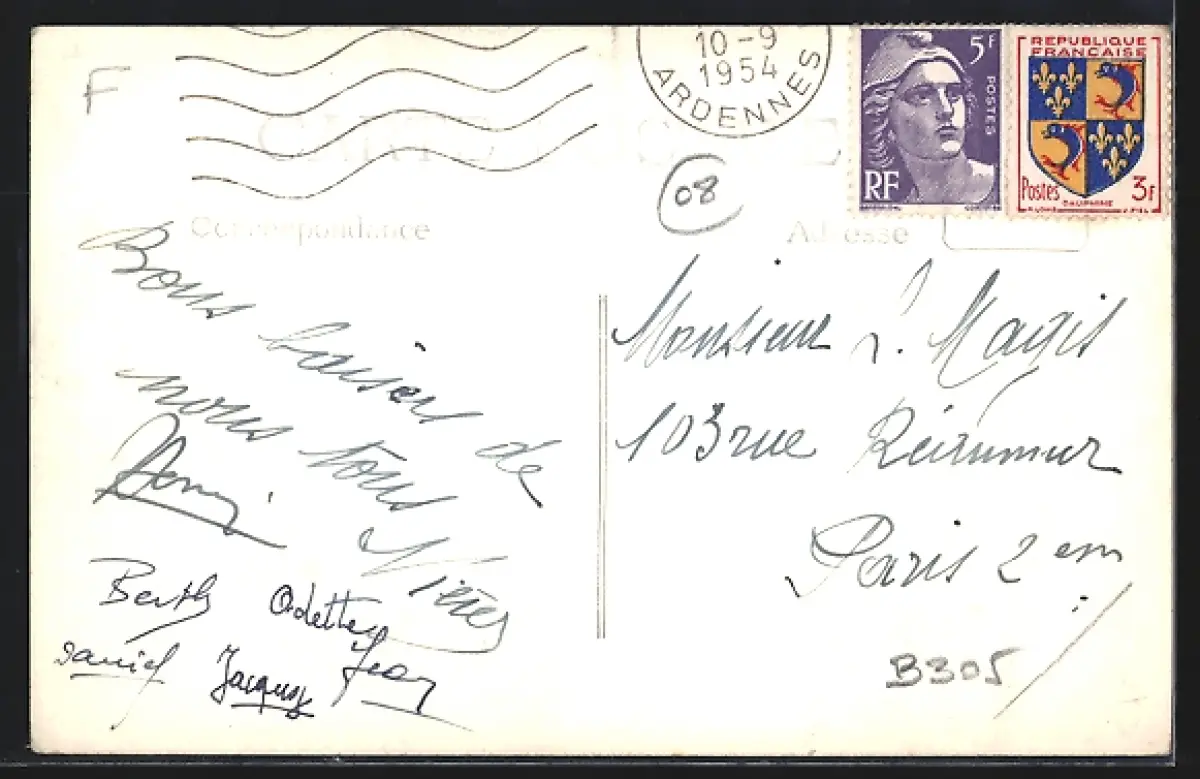 F
10-9
1954
ARDENNES
5F
POSTES
RF
REPUBLIQUE
FRANÇAISE
Postes 3F
DAUPHINE
CARTE POSTALE
08
Correspondance
Adresse
Bons baisers de
nous tous
Berthe Odette Jean
Daniel Jacques
Monsieur Magis
103 rue Réaumur
Paris 2 em
B305